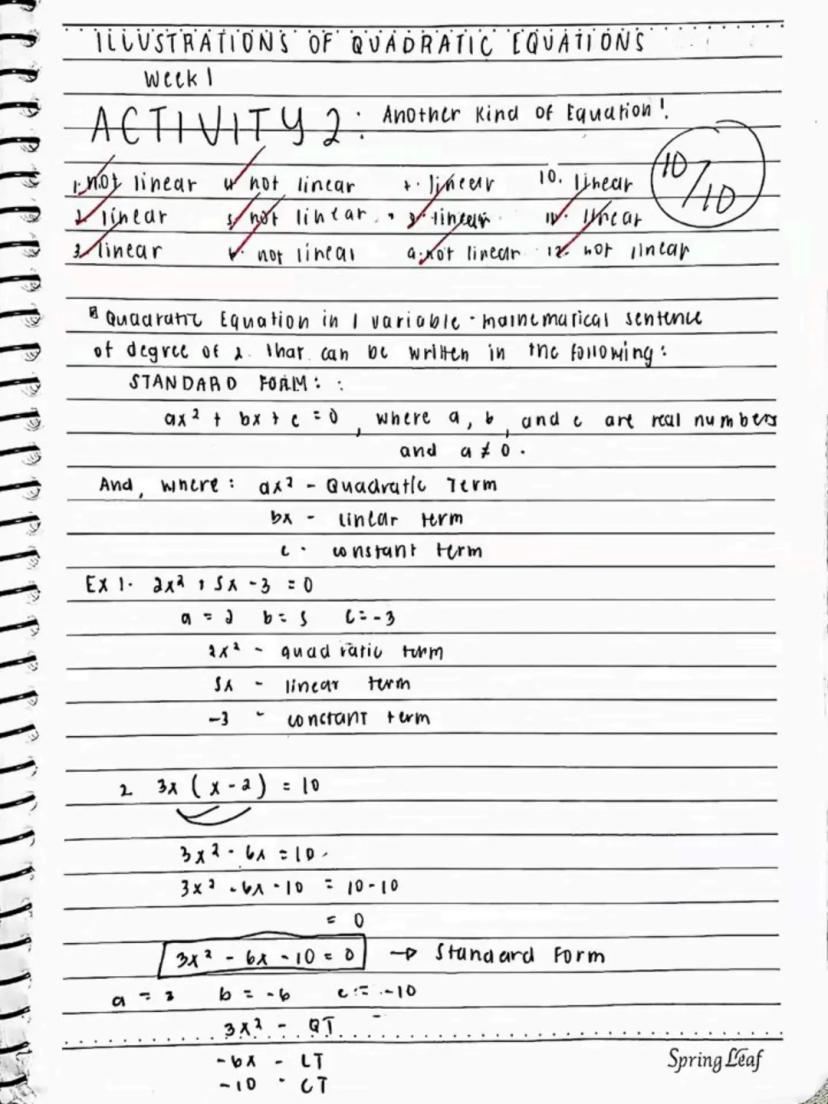 ILLUSTRATIONS OF QUADRATIC EQUATIONS
Week 1
ACTIVITY 2: Another Kind of Equation!
1. not linear 4. not linear 7. linear 10. linear
2. linear 5. not linear 8. linear 11. linear
3. linear 6. not linear 9. not linear 12. not linear
10/10
Quadratic Equation in 1 variable - mathematical sentence
of degree of 2 that can be written in the following:
STANDARD FORM: :
ax² + bx + c = 0, where a, b, and c are real numbers
and a ≠ 0.
And, where: ax² - Quadratic Term
bx - linear term
c - constant term
Ex 1. 2x² + 5x - 3 = 0
a = 2 b = 5 c = -3
2x² - quadratic term
5x - linear term
-3 - constant term
2 3x (x - 2) = 10
3x² - 6x = 10
3x² - 6x - 10 = 10 - 10
= 0
3x² - 6x - 10 = 0 → Standard Form
a = 3 b = -6 c = -10
3x² - QT
-6x - LT
-10 - CT
Spring Leaf